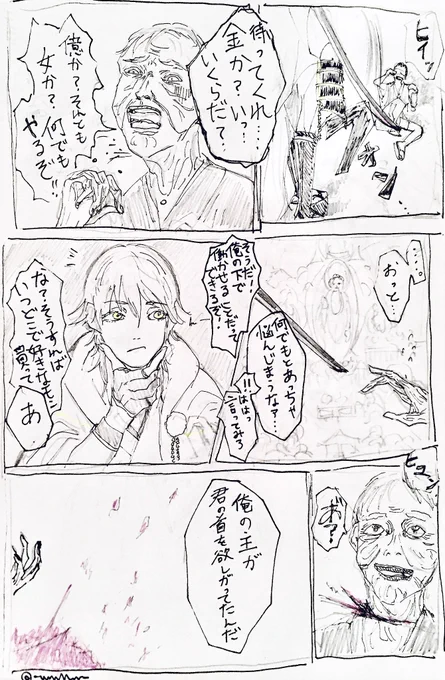 ヒイッ
待ってくれ…
金か?いっ?
いくらだ?
億か?それとも
女か?何でも
やるぞ!!
…。
おっと…
何でもとあっちゃ
悩んじまうなァ…
!!ははっ
言ってみろ
そうだ!
俺の下で
働かせることだって
できるぞ?
な?そうすれば
いつどこで好きなモン
買って
あ
ヒュン
あ?
俺の主が
君の首を欲しがってたんだ